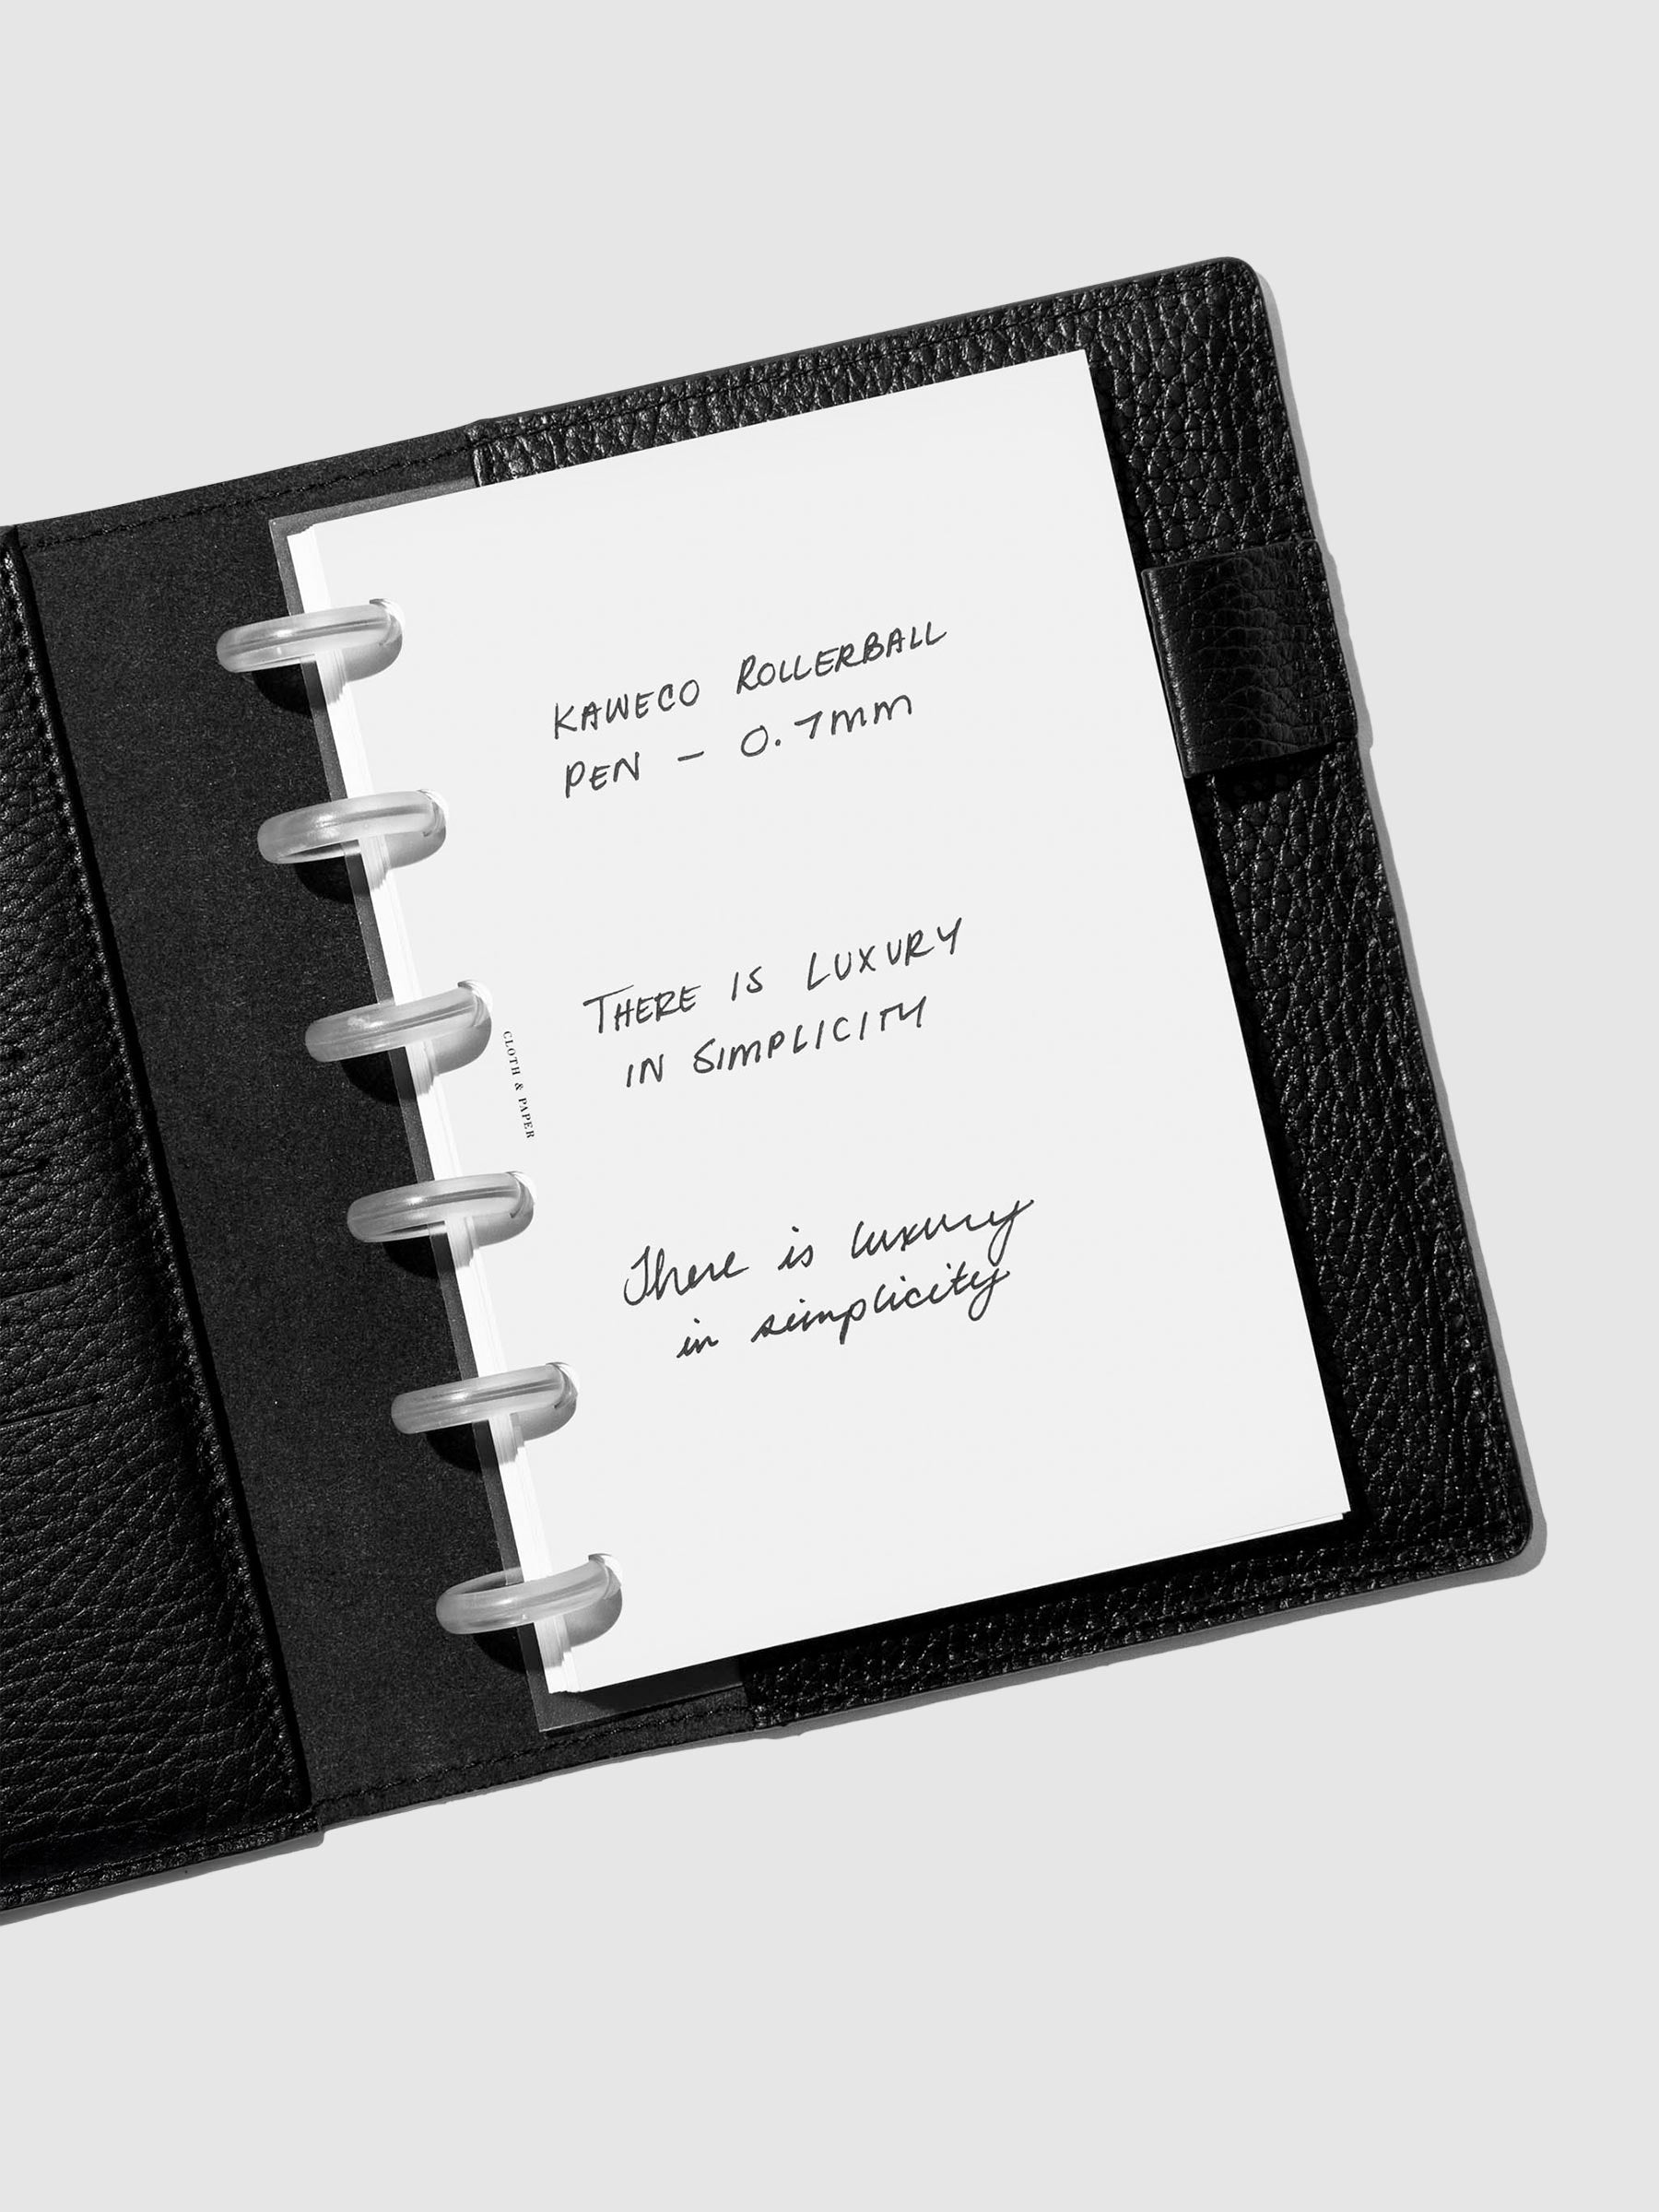 KAWECO ROLLERBALL
PEN – 0.7mm
THERE IS LUXURY
IN SIMPLICITY
There is luxury
in simplicity
CLOTH & PAPER